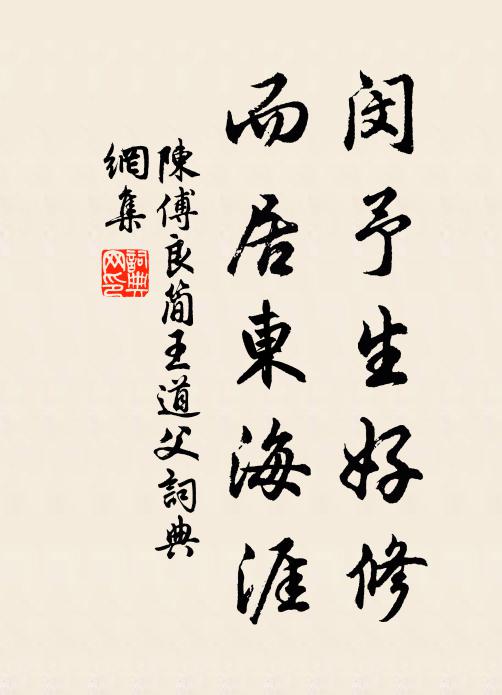 闵予生好修
而居東海涯
陳傅良簡王道父詞典
網集
詞典
网印